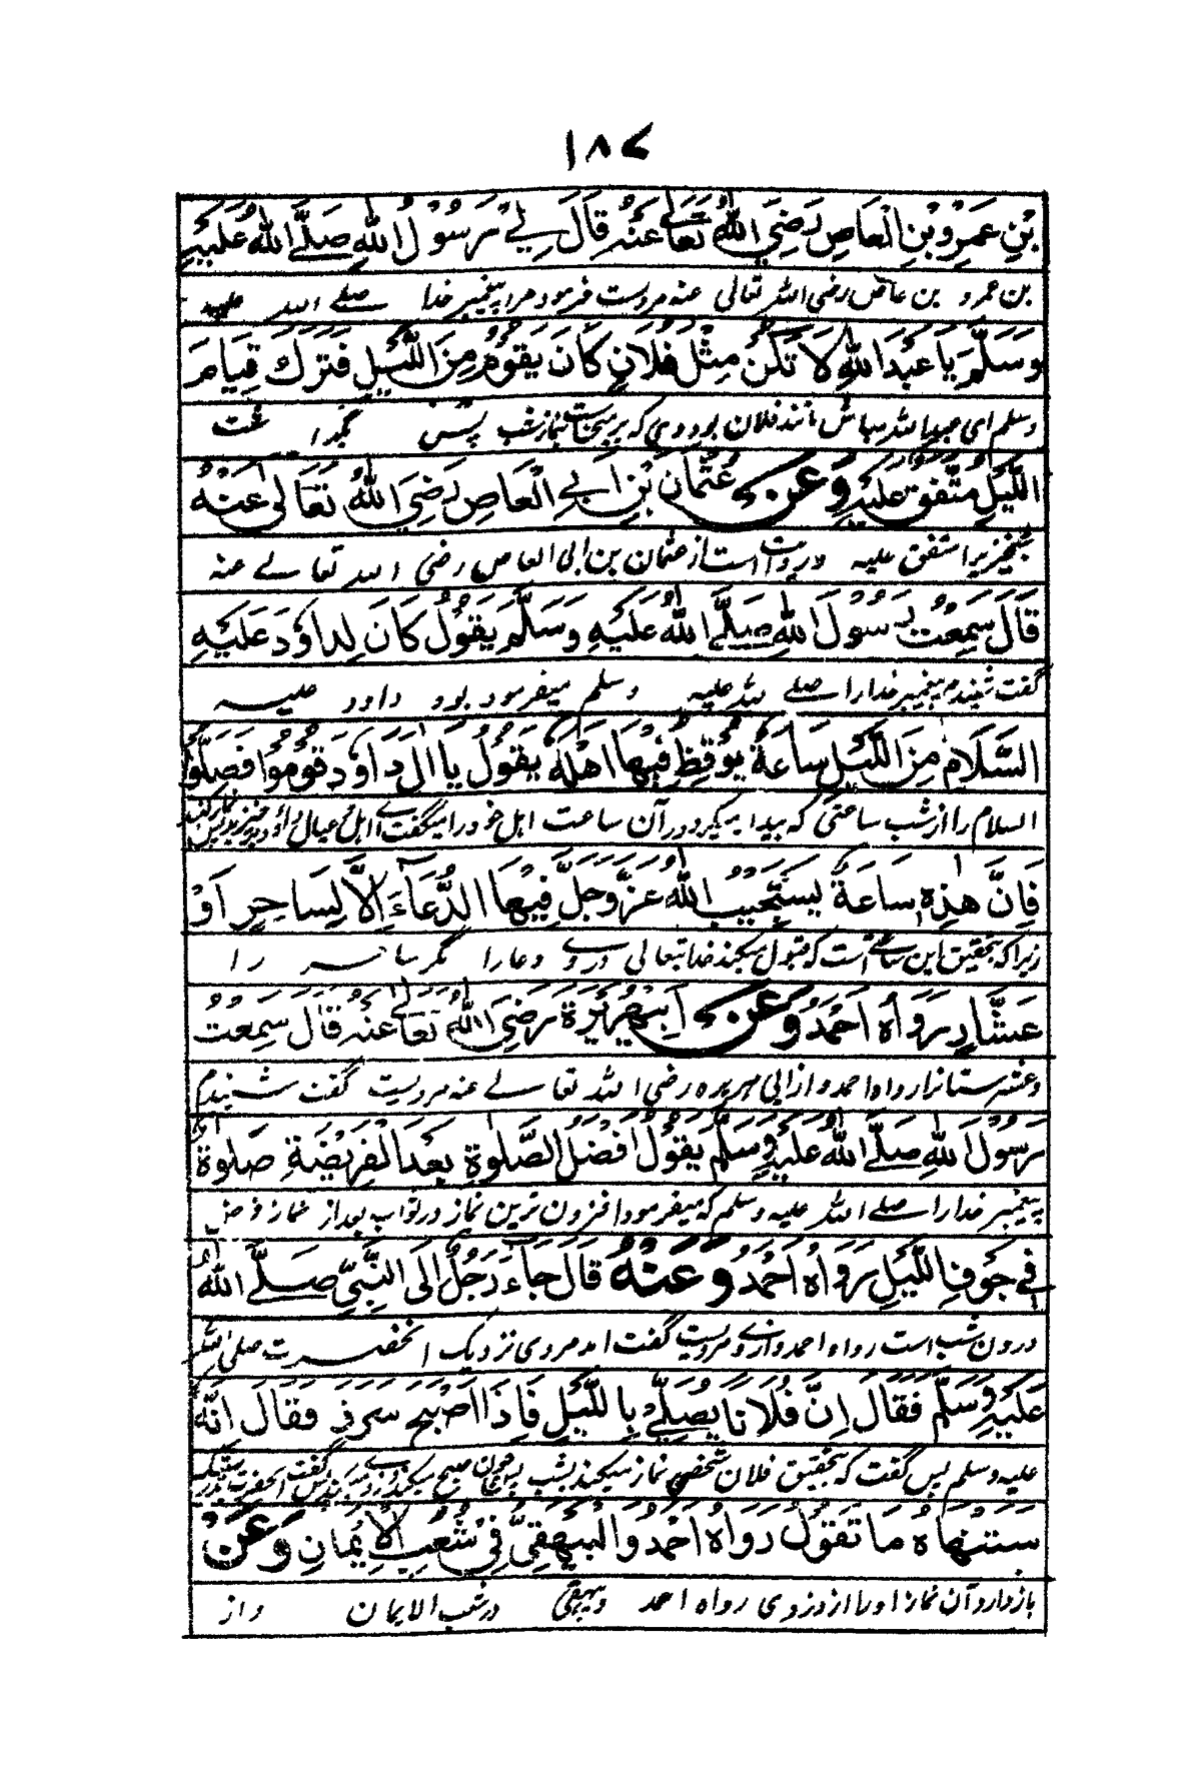 ۱۸۷
بْنِ عَمْرِو بْنِ الْعَاصِ رَضِيَ اللهُ تَعَالٰى عَنْهُ قَالَ لِيْ رَسُوْلُ اللهِ صَلَّى اللهُ عَلَيْهِ
بن عمرو بن عاص رضی اللہ تعالی عنه مرویست فرمود مرا پیغمبر خدا صلے اللہ علیه
وَسَلَّمَ يَا عَبْدَ اللهِ لَا تَكُنْ مِثْلَ فُلَانٍ كَانَ يَقُوْمُ مِنَ اللَّيْلِ فَتَرَكَ قِيَامَ
وسلم ای عبد اللہ مباش مانند فلان بود وی که برمیخاست نماز شب پس بگذاشت
اللَّيْلِ مُتَّفَقٌ عَلَيْهِ وَعَنْ عُثْمَانَ بْنِ اَبِي الْعَاصِ رَضِيَ اللهُ تَعَالٰى عَنْهُ
شبخیزیرا متفق علیه و روایت است از عثمان بن ابی العاص رضی اللہ تعالے عنه
قَالَ سَمِعْتُ رَسُوْلَ اللهِ صَلَّى اللهُ عَلَيْهِ وَسَلَّمَ يَقُوْلُ كَانَ لِدَاوٗدَ عَلَيْهِ
گفت شنیدم پیغمبر خدا را صلے اللہ علیه وسلم میفرمود بود داود علیه
السَّلَامُ مِنَ اللَّيْلِ سَاعَةٌ يُوْقِظُ فِيْهَا اَهْلَهٗ يَقُوْلُ يَا اٰلَ دَاوٗدَ قُوْمُوْا فَصَلُّوْا
السلام را از شب ساعتی که بیدار میکرد در آن ساعت اهل خود را میگفت اے اهل و عیال داؤد برخیزید پس نماز کنید
فَاِنَّ هٰذِهٖ سَاعَةٌ يَسْتَجِيْبُ اللهُ عَزَّ وَجَلَّ فِيْهَا الدُّعَاءَ اِلَّا لِسَاحِرٍ اَوْ
زیرا که بتحقیق این ساعتے است که قبول میکند خدا تعالی دروے دعا را مگر ساحر را
عَشَّارٍ رَوَاهُ اَحْمَدُ وَعَنْ اَبِيْ هُرَيْرَةَ رَضِيَ اللهُ تَعَالٰى عَنْهُ قَالَ سَمِعْتُ
و عشر ستانرا رواه احمد و از ابی هریره رضی اللہ تعالے عنه مرویست گفت شنیدم
رَسُوْلَ اللهِ صَلَّى اللهُ عَلَيْهِ وَسَلَّمَ يَقُوْلُ اَفْضَلُ الصَّلٰوةِ بَعْدَ الْفَرِيْضَةِ صَلٰوةٌ
پیغمبر خدا را صلے اللہ علیه وسلم که میفرمود افزون ترین نماز در ثواب بعد از نماز فرض
فِيْ جَوْفِ اللَّيْلِ رَوَاهُ اَحْمَدُ وَعَنْهُ قَالَ جَاءَ رَجُلٌ اِلَى النَّبِيِّ صَلَّى اللهُ
درون شب است رواه احمد و از وے مرویست گفت آمد مردی نزدیک آنحضرت صلی اللہ
عَلَيْهِ وَسَلَّمَ فَقَالَ اِنَّ فُلَانًا يُصَلِّيْ بِاللَّيْلِ فَاِذَا اَصْبَحَ سَرَقَ فَقَالَ اِنَّهٗ
علیه وسلم پس گفت که بتحقیق فلان شخص نماز میکند بشب پس چون صبح میکند دزدی میکند پس گفت آنحضرت بدرستیکه
سَتَنْهَاهُ مَا تَقُوْلُ رَوَاهُ اَحْمَدُ وَالْبَيْهَقِيُّ فِيْ شُعَبِ الْاِيْمَانِ وَعَنْ
باز دارد آن نماز او را از دزدی رواه احمد و بیهقی در شعب الایمان و از